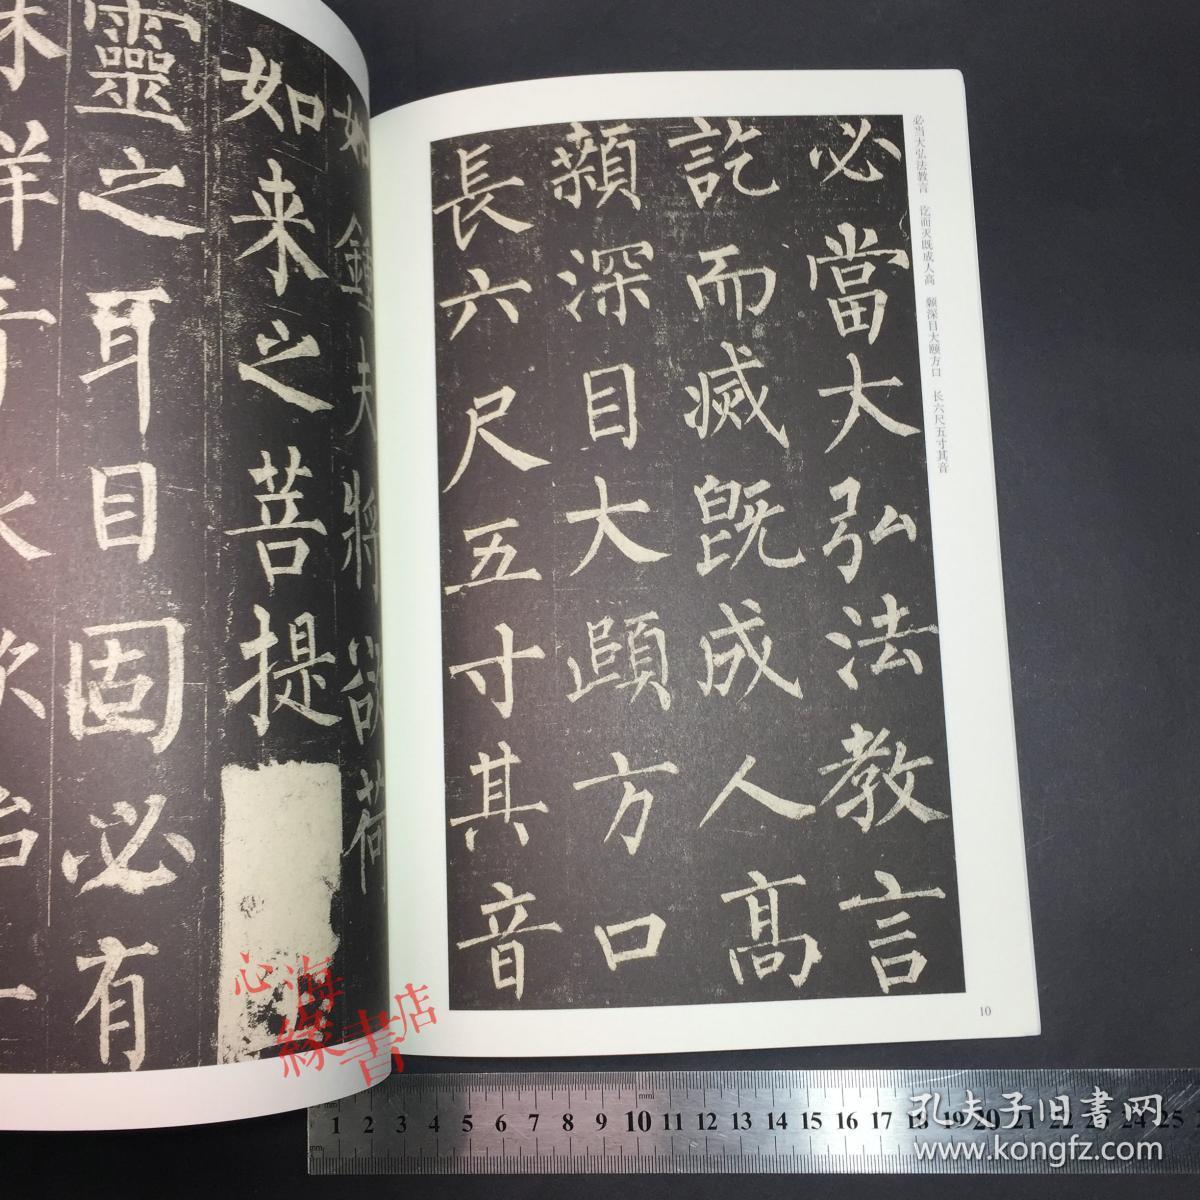 必當大弘法教言
訖而滅既成人高
顙深目大頤方口
長六尺五寸其音
必当大弘法教言 讫而灭既成人高 颡深目大颐方口 长六尺五寸其音
10
如鍾夫將欲荷
如来之菩提
靈之耳目固必有
心海
緣書店
mm
cm
1 2 3 4 5 6 7 8 9 10 11 12 13 14 15 16 17 18 19 20 21 22 23 24 25
孔夫子旧書网
www.kongfz.com